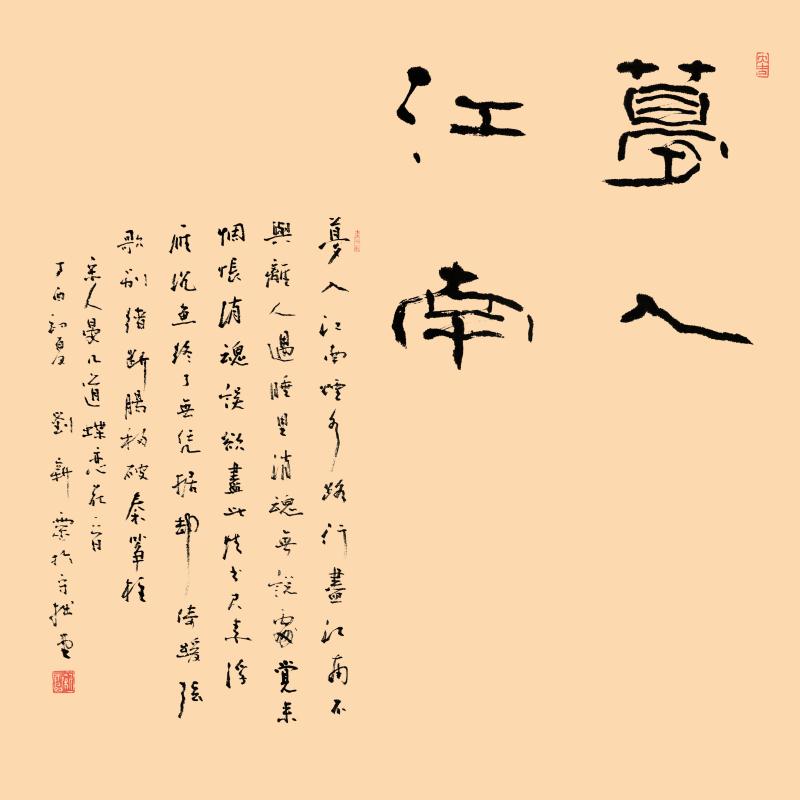 夢入
江南
夢入江南煙水路行盡江南不
與離人遇睡里消魂無說處覺來
惆悵消魂誤欲盡此情書尺素浮
雁沉魚終了無憑據卻倚緩弦
歌別緒斷腸移破秦箏柱
宋人晏几道蝶戀花一首
丁酉初夏 劉新 於守拙堂